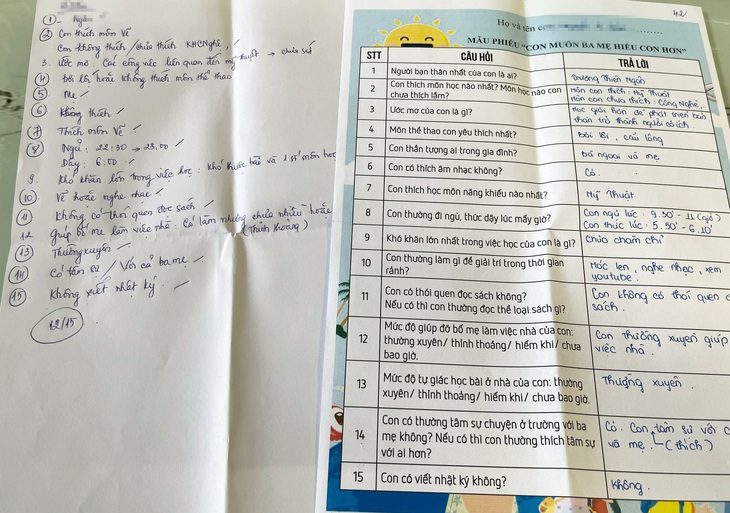 ① - Ngân
② Con thích môn Vẽ
Con không thích / chưa thích KHCNghệ, ✓
3. Ước mơ Các công việc liên quan đến mỹ thuật → chưa sát
④ Bơi lội hoặc không thích môn thể thao
⑤ Mẹ ✓
⑥ Không thích ✓
⑦ Thích môn Vẽ ✓
⑧ Ngủ: 22:30 → 23,00 ✓
Dậy: 6.00 ✓
9. Khó khăn lớn trong việc học: Khó thuộc bài và 1 số môn học
⑩ Vẽ hoặc nghe nhạc ✓
⑪ Không có thói quen đọc sách ✓
12 Giúp bố mẹ làm việc nhà: Có làm nhưng chưa nhiều hoặc
(Thỉnh thoảng)
⑬ Thường xuyên ✓
⑭ Có tâm sự / Với cả ba mẹ ✓
⑮. Không viết nhật ký. ✓
12/15
42/
Họ và tên con
MẪU PHIẾU "CON MUỐN BA MẸ HIỂU CON HƠN"
STT CÂU HỎI TRẢ LỜI
1 Người bạn thân nhất của con là ai? Trương Thiên Ngân
2 Con thích môn học nào nhất? Môn học nào con Môn con thích: Mỹ Thuật
chưa thích lắm? Môn con chưa thích: Công Nghệ,
3 Ước mơ của con là gì? Học giỏi hơn để phát triển bản
thân trở thành người có ích.
4 Môn thể thao con yêu thích nhất? Bơi lội, cầu lông
5 Con thần tượng ai trong gia đình? Bà ngoại và mẹ
6 Con có thích âm nhạc không? Có.
7 Con thích học môn năng khiếu nào nhất? Mỹ Thuật
8 Con thường đi ngủ, thức dậy lúc mấy giờ? Con ngủ lúc: 9.30' - 11 (giờ)
Con thức lúc: 5.50' - 6.10'
9 Khó khăn lớn nhất trong việc học của con là gì? Chưa chăm chỉ
10 Con thường làm gì để giải trí trong thời gian Móc len, nghe nhạc, xem
rảnh? youtube.
11 Con có thói quen đọc sách không? Con không có thói quen
Nếu có thì con thường đọc thể loại sách gì? sách.
12 Mức độ giúp đỡ bố mẹ làm việc nhà của con: Con thường xuyên giúp
thường xuyên/ thỉnh thoảng/ hiếm khi/ chưa việc nhà.
bao giờ.
13 Mức độ tự giác học bài ở nhà của con: thường Thường xuyên.
xuyên/ thỉnh thoảng/ hiếm khi/ chưa bao giờ.
14 Con có thường tâm sự chuyện ở trường với ba Có. Con tâm sự với
mẹ không? Nếu có thì con thường thích tâm sự và mẹ. (thích)
với ai hơn?
15 Con có viết nhật ký không? Không.